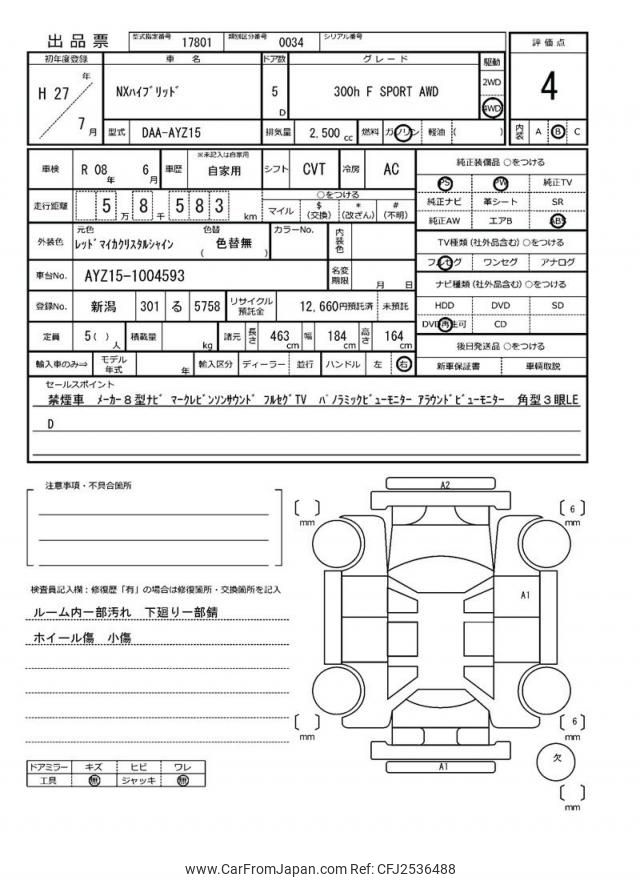 出品票 型式指定番号 17801 類別区分番号 0034 シリアル番号
初年度登録 車 名 ドア数 グレード 駆動 評価点
H 27 年 7 月
NXﾊｲﾌﾞﾘｯﾄﾞ 5 D 300h F SPORT AWD 2WD 4WD 4
型式 DAA-AYZ15 排気量 2,500 cc 燃料 ガソリン 軽油 ( ) 内装 A B C
車検 R 08 年 6 月 車歴 ※未記入は自家用 自家用 シフト CVT 冷房 AC
走行距離 5 万 8 千 5 8 3 km ○をつける
マイル $ (交換) * (改ざん) # (不明)
外装色 元色 ﾚｯﾄﾞﾏｲｶｸﾘｽﾀﾙｼｬｲﾝ 色替 ( 色替無 ) カラーNo. 内装色
車台No. AYZ15-1004593 名変期限 月 日
登録No. 新潟 301 る 5758 リサイクル預託金 12,660円預託済 未預託
定員 5( ) 人 積載量 kg 諸元 長さ 463 cm 幅 184 cm 高さ 164 cm
輸入車のみ⇒ モデル年式 年 輸入区分 ディーラー 並行 ハンドル 左 右
純正装備品 ○をつける
PS PW 純正TV
純正ナビ 革シート SR
純正AW エアB ABS
TV種類 (社外品含む) ○をつける
フルセグ ワンセグ アナログ
ナビ種類 (社外品含む) ○をつける
HDD DVD SD
DVD再生可 CD
後日発送品 ○をつける
新車保証書 車輌取説
セールスポイント
禁煙車 ﾒｰｶｰ８型ﾅﾋﾞ ﾏｰｸﾚﾋﾞﾝｿﾝｻｳﾝﾄﾞ ﾌﾙｾｸﾞTV ﾊﾟﾉﾗﾐｯｸﾋﾞｭｰﾓﾆﾀｰ ｱﾗｳﾝﾄﾞﾋﾞｭｰﾓﾆﾀｰ 角型３眼LE
D
注意事項・不具合箇所
検査員記入欄：修復歴「有」の場合は修復箇所・交換箇所を記入
ルーム内一部汚れ 下廻り一部錆
ホイール傷 小傷
ドアミラー キズ ヒビ ワレ
工具 無 ジャッキ 無
A2
[ ] mm
[ 6 ] mm
A1
[ ] mm
[ 6 ] mm
A1
欠
[ ] mm
www.CarFromJapan.com Ref: CFJ2536488